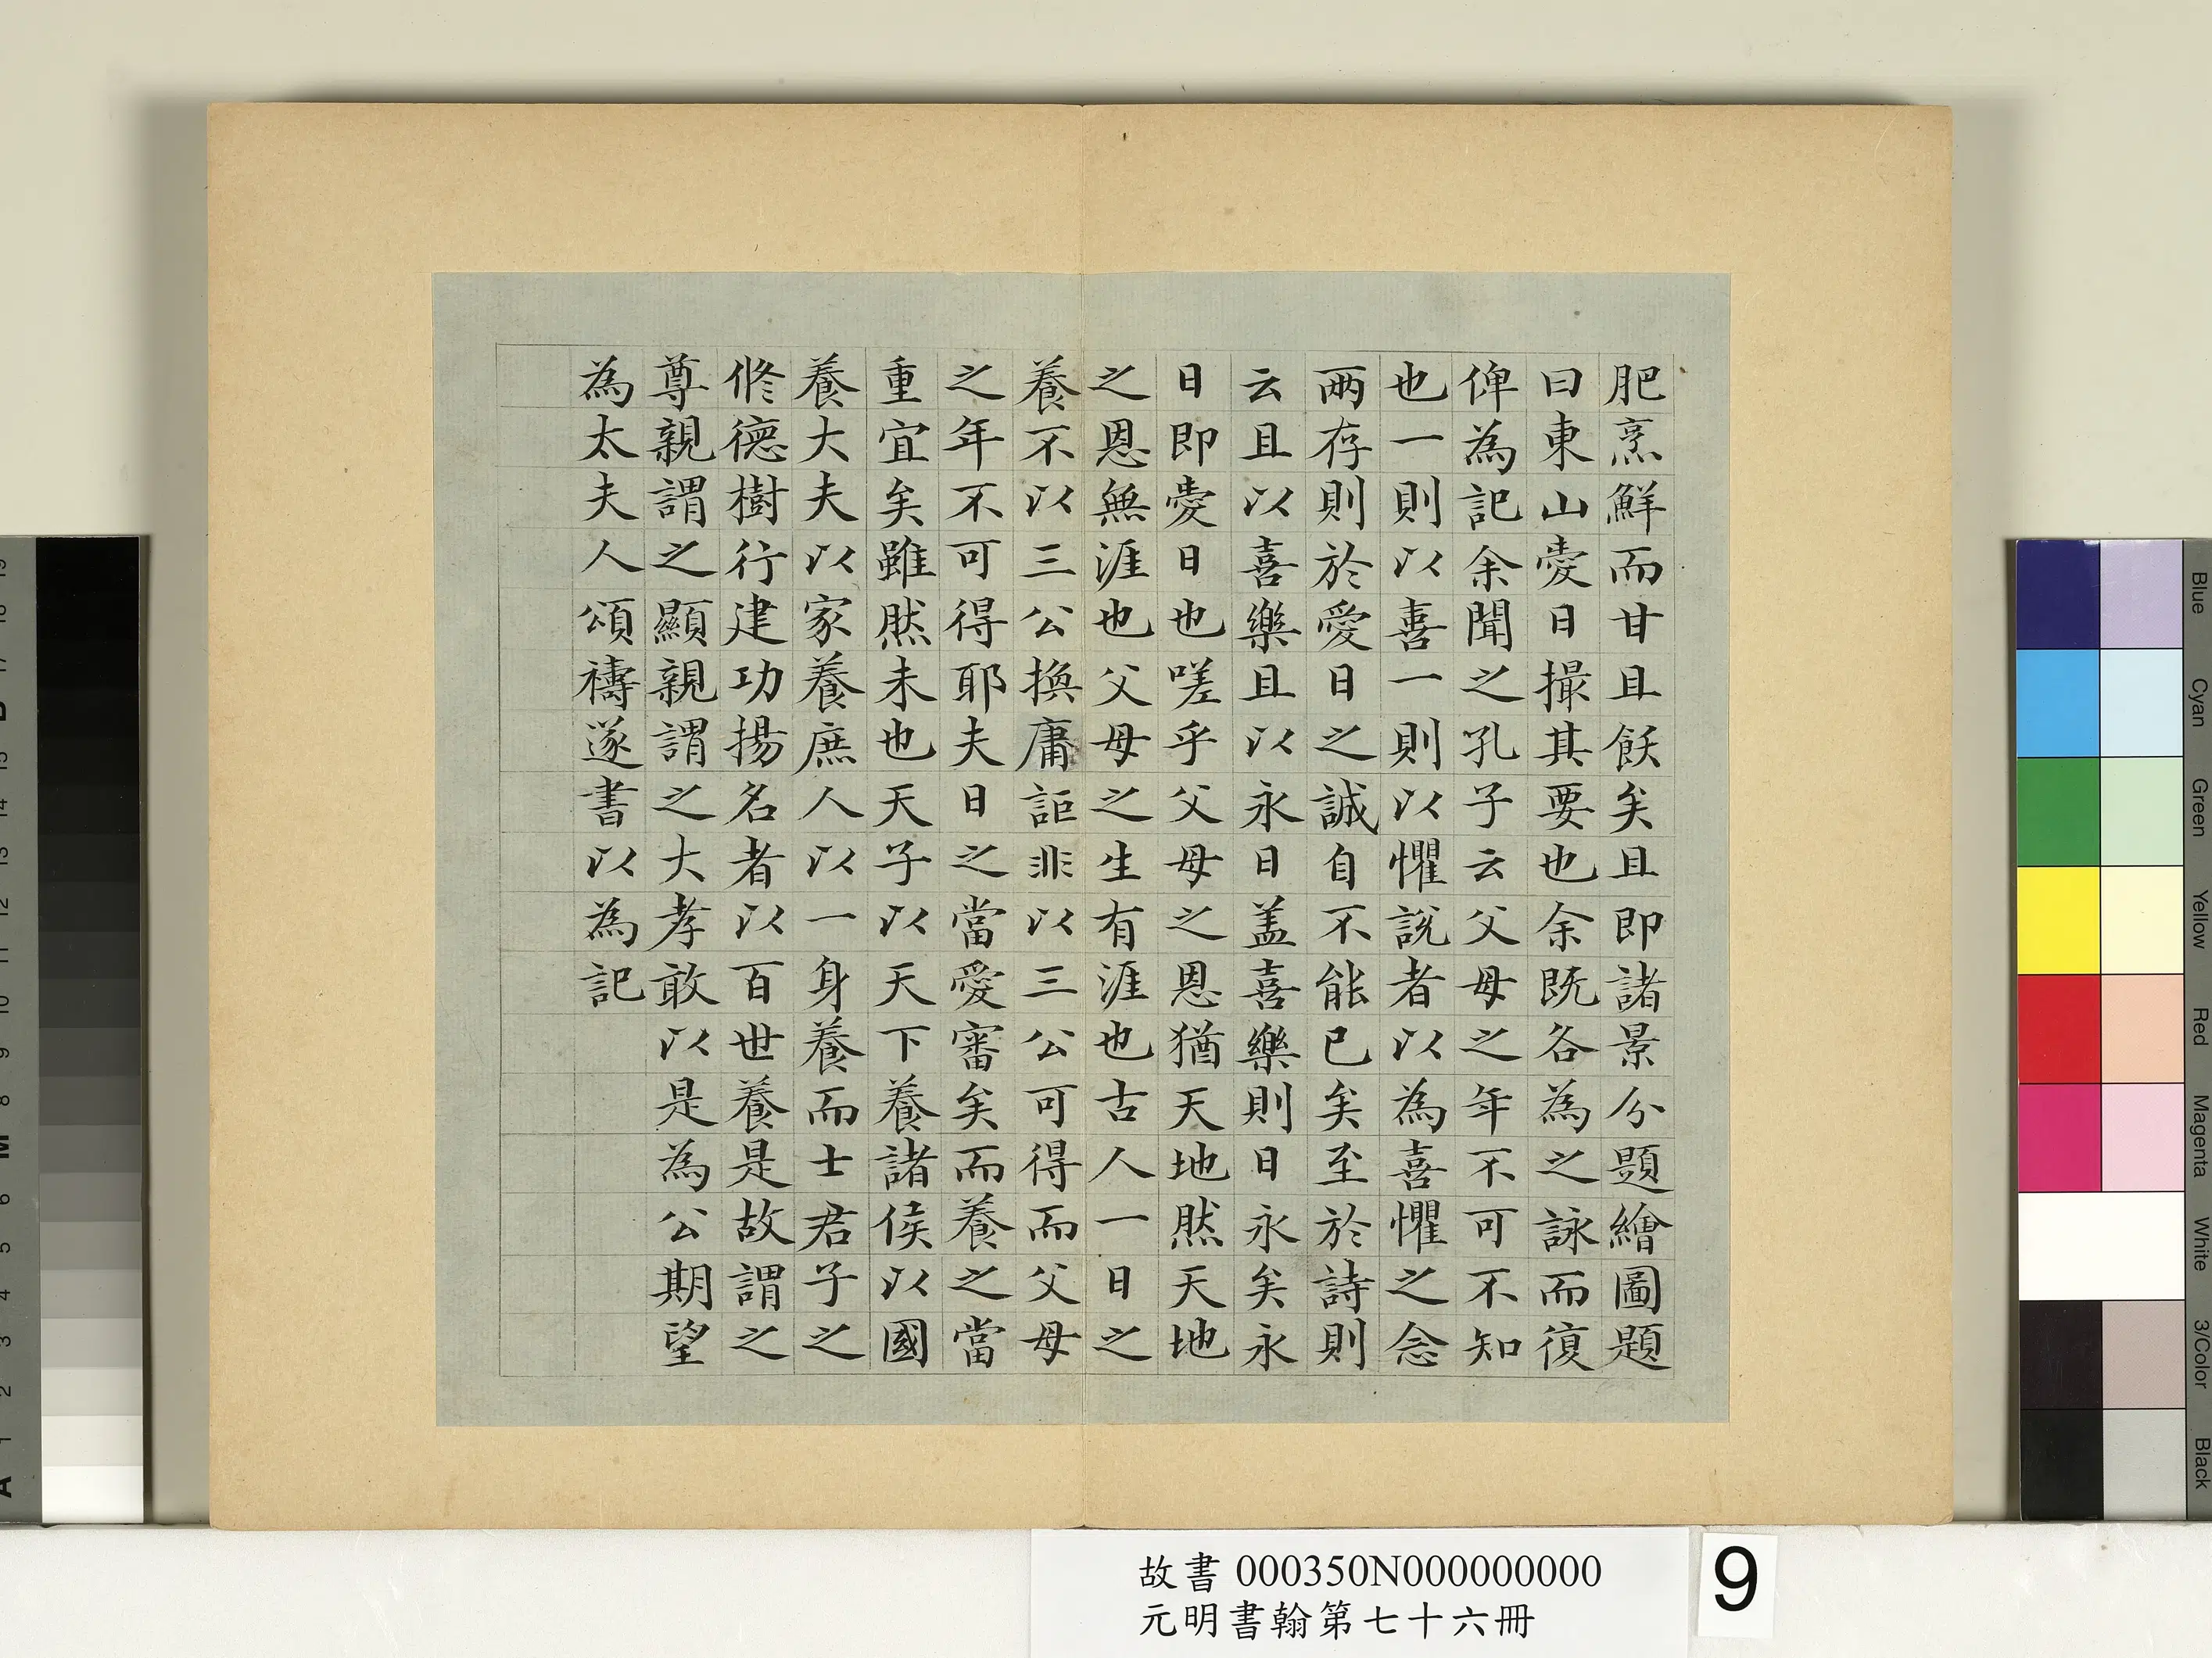 肥烹鮮而甘且飫矣且即諸景分題繪圖題
曰東山愛日撮其要也余既各為之詠而復
俾為記余聞之孔子云父母之年不可不知
也一則以喜一則以懼說者以為喜懼之念
兩存則於愛日之誠自不能已矣至於詩則
云且以喜樂且以永日盖喜樂則日永矣永
日即愛日也嗟乎父母之恩猶天地然天地
之恩無涯也父母之生有涯也古人一日之
養不以三公換庸詎非以三公可得而父母
之年不可得耶夫日之當愛審矣而養之當
重宜矣雖然未也天子以天下養諸侯以國
養大夫以家養庶人以一身養而士君子之
修德樹行建功揚名者以百世養是故謂之
尊親謂之顯親謂之大孝敢以是為公期望
為太夫人頌禱遂書以為記
故書 000350N000000000
元明書翰第七十六冊
9
Blue
Cyan
Green
Yellow
Red
Magenta
White
3/Color
Black
19
18
17
B
15
14
13
12
11
10
9
8
M
6
5
4
3
2
1
A